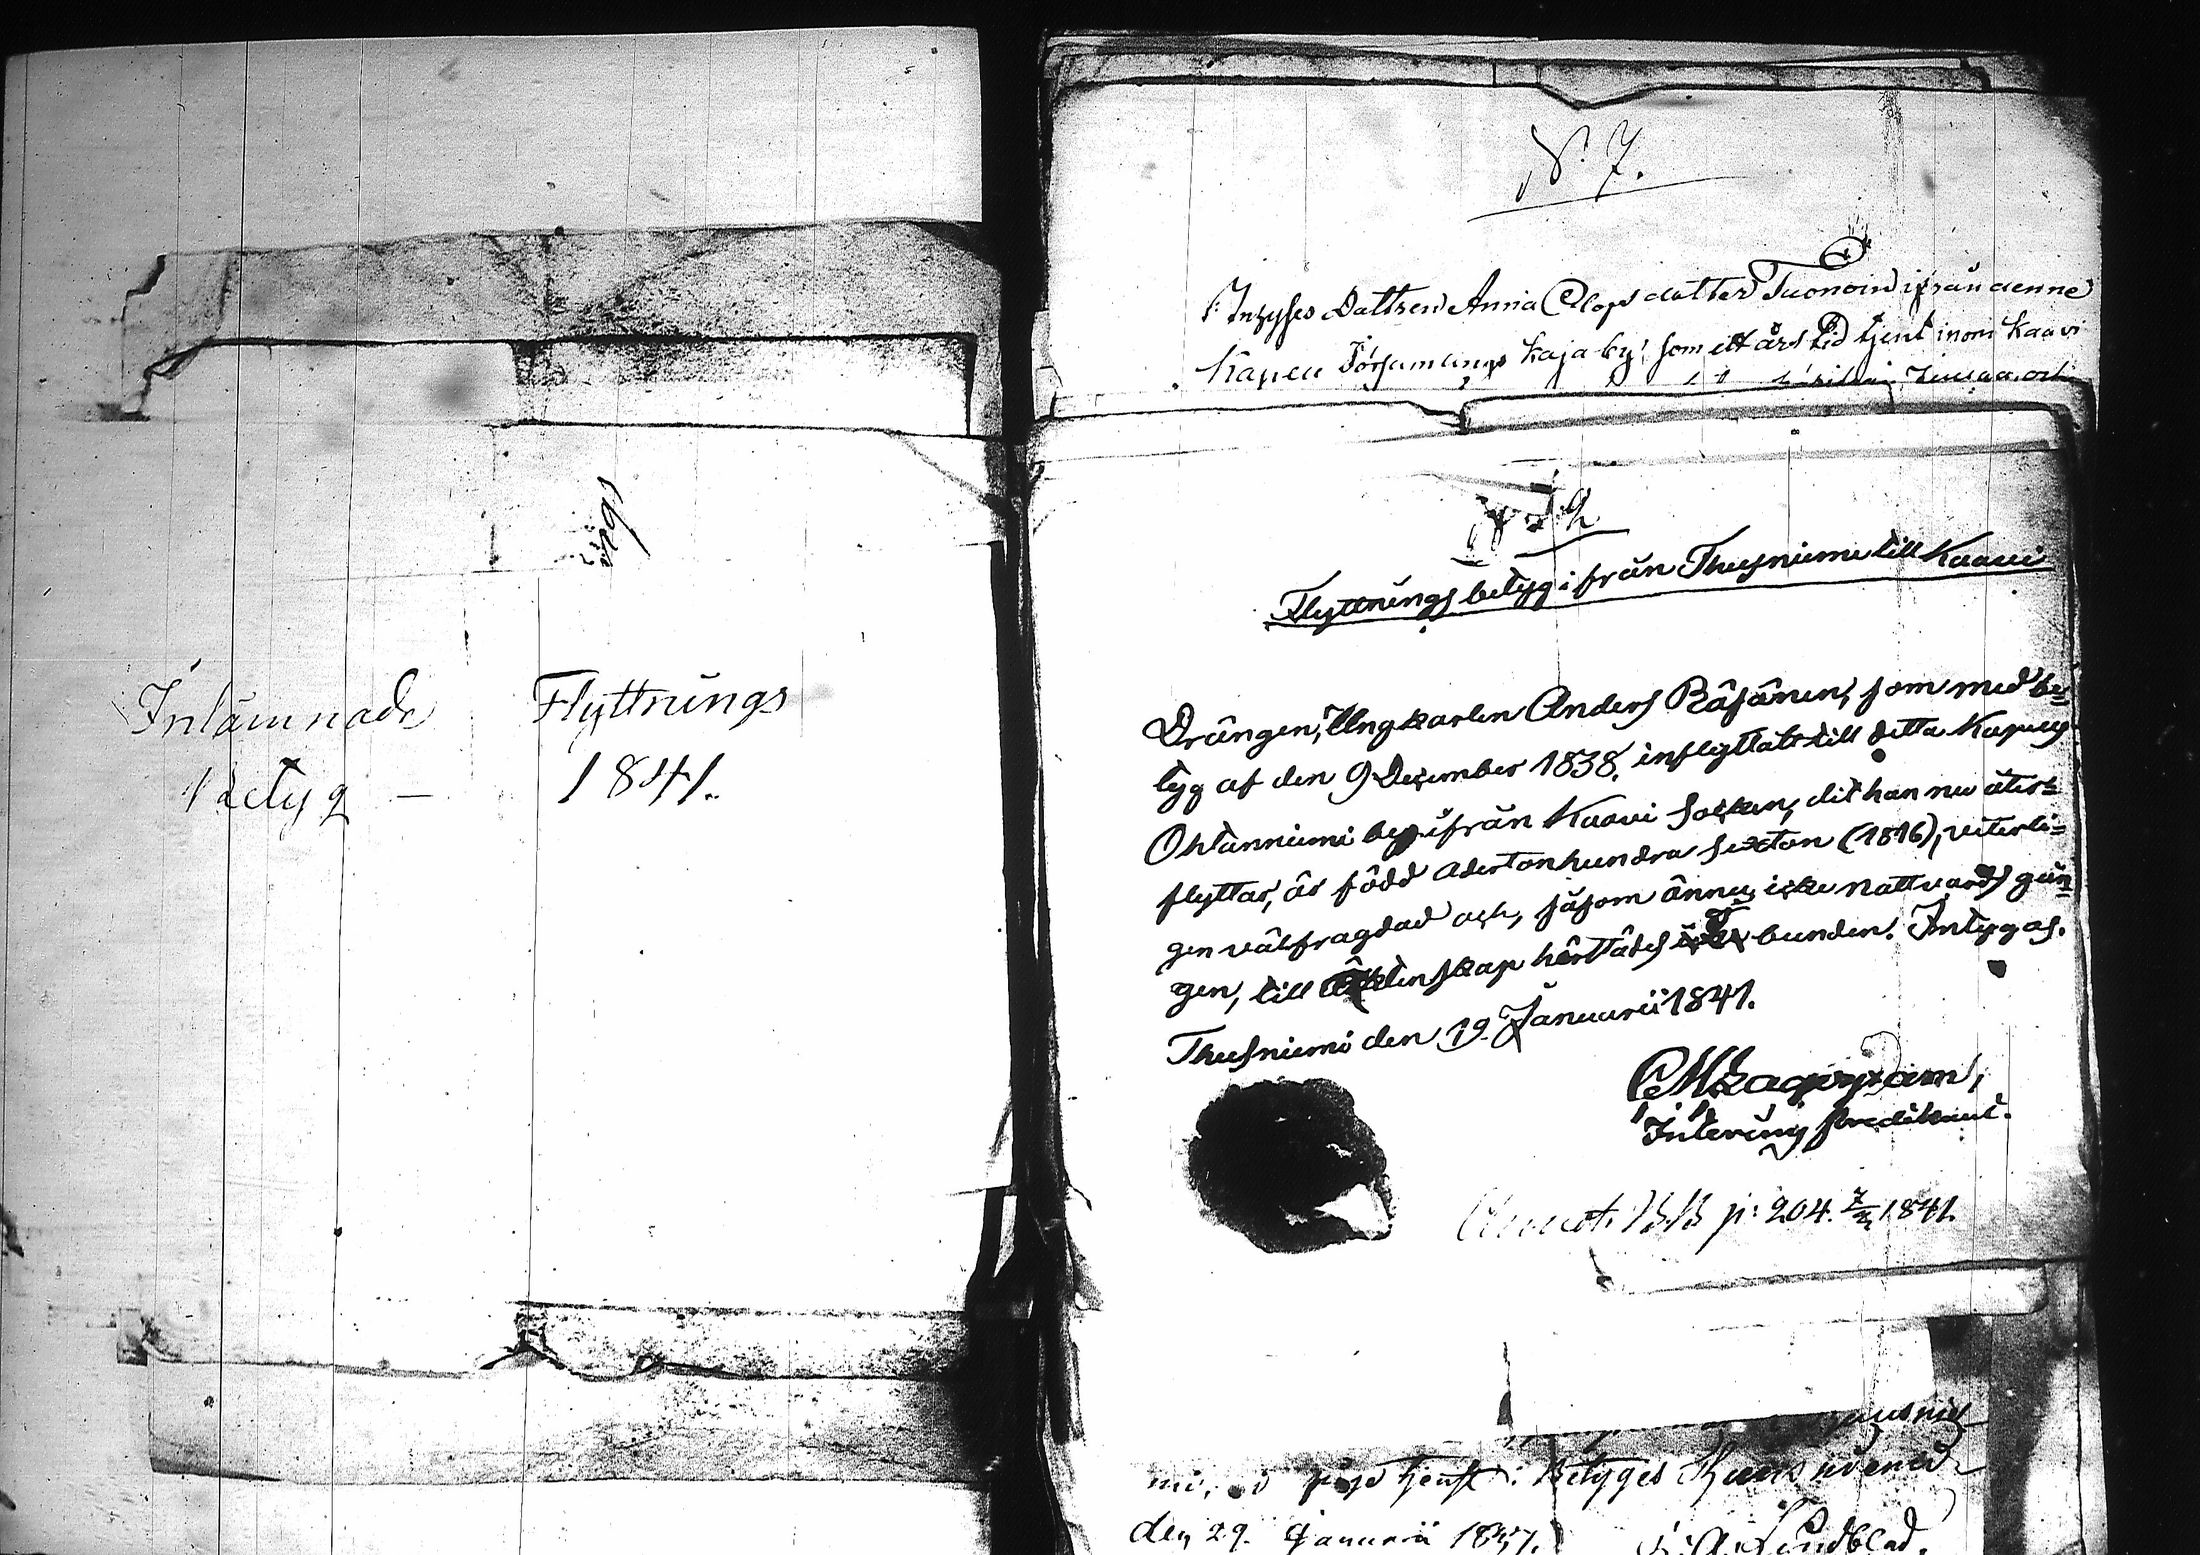 ings
Inlämnade Flyttnings
Betyg — 1841.
N:o 7.
Pigan Anna Olofsdotter Tuonoin ifrån denne
Kapell Församlings Kajaby, som ett års tid tjent inom Kaavi
N:o 2
Flyttningsbetyg ifrån Thusniemi till Kaavi
Drängen, Ungkarlen Anders Räsänen, som med be-
tyg af den 9 December 1838, inflyttat till detta Kapells
Ohtanniemi by ifrån Kaavi Socken, dit han nu åter-
flyttar, är född adertonhundra sexton (1816), veterli-
gen välfrägdad och, såsom ännu icke nattvards gån-
gen, till Äktenskap härstädes bunden. Intygas.
Thusniemi den 19 Januarii 1841.
Interims predikant.
Annot. B.B p: 204. 7/2 1841.
mi, tjenst; Betyges
den 29. Januarii 1841. Lindblad.